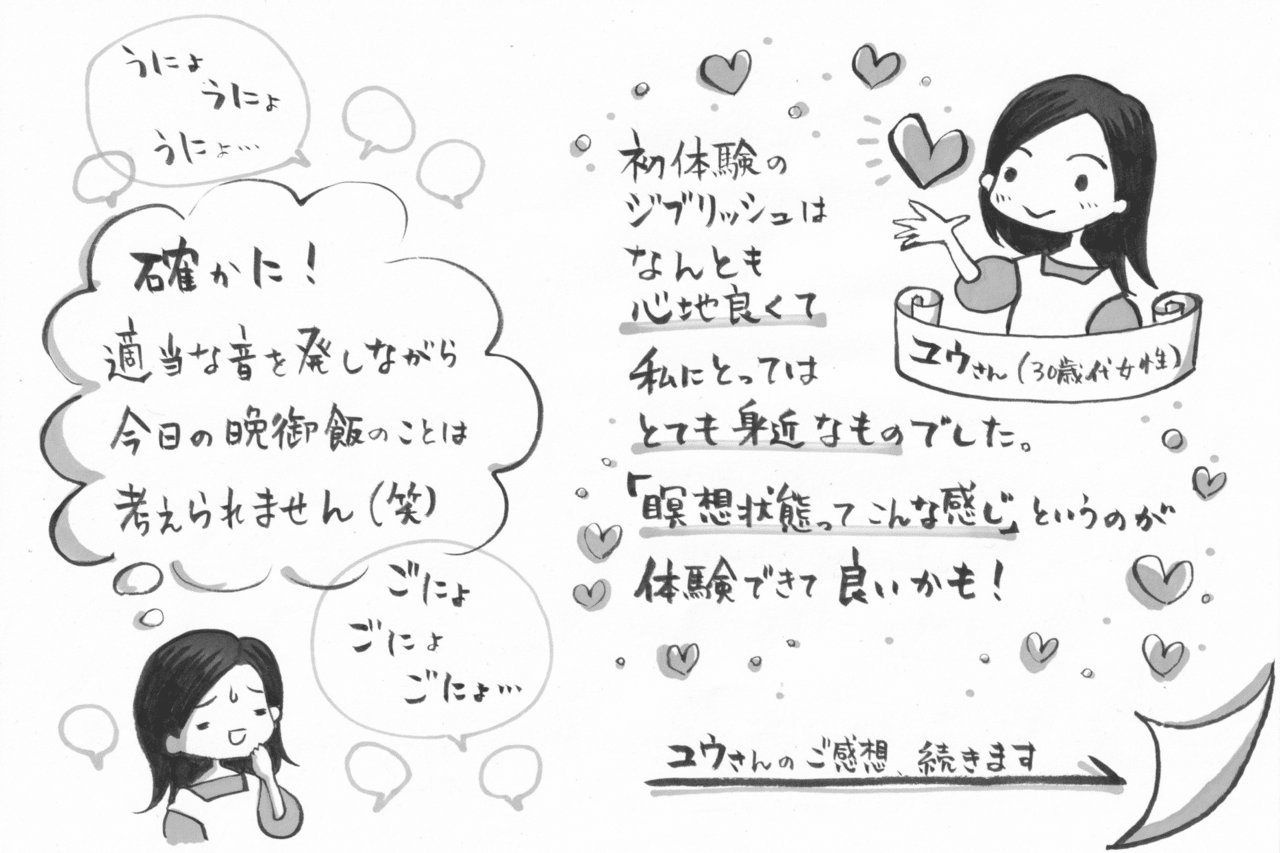 うにょ
うにょ
うにょ…
確かに！
適当な音を発しながら
今日の晩御飯のことは
考えられません（笑）
ごにょ
ごにょ
ごにょ…
初体験の
ジブリッシュは
なんとも
心地良くて
私にとっては
とても身近なものでした。
「瞑想状態ってこんな感じ」というのが
体験できて良いかも！
ユウさん（30歳代女性）
ユウさんのご感想、続きます